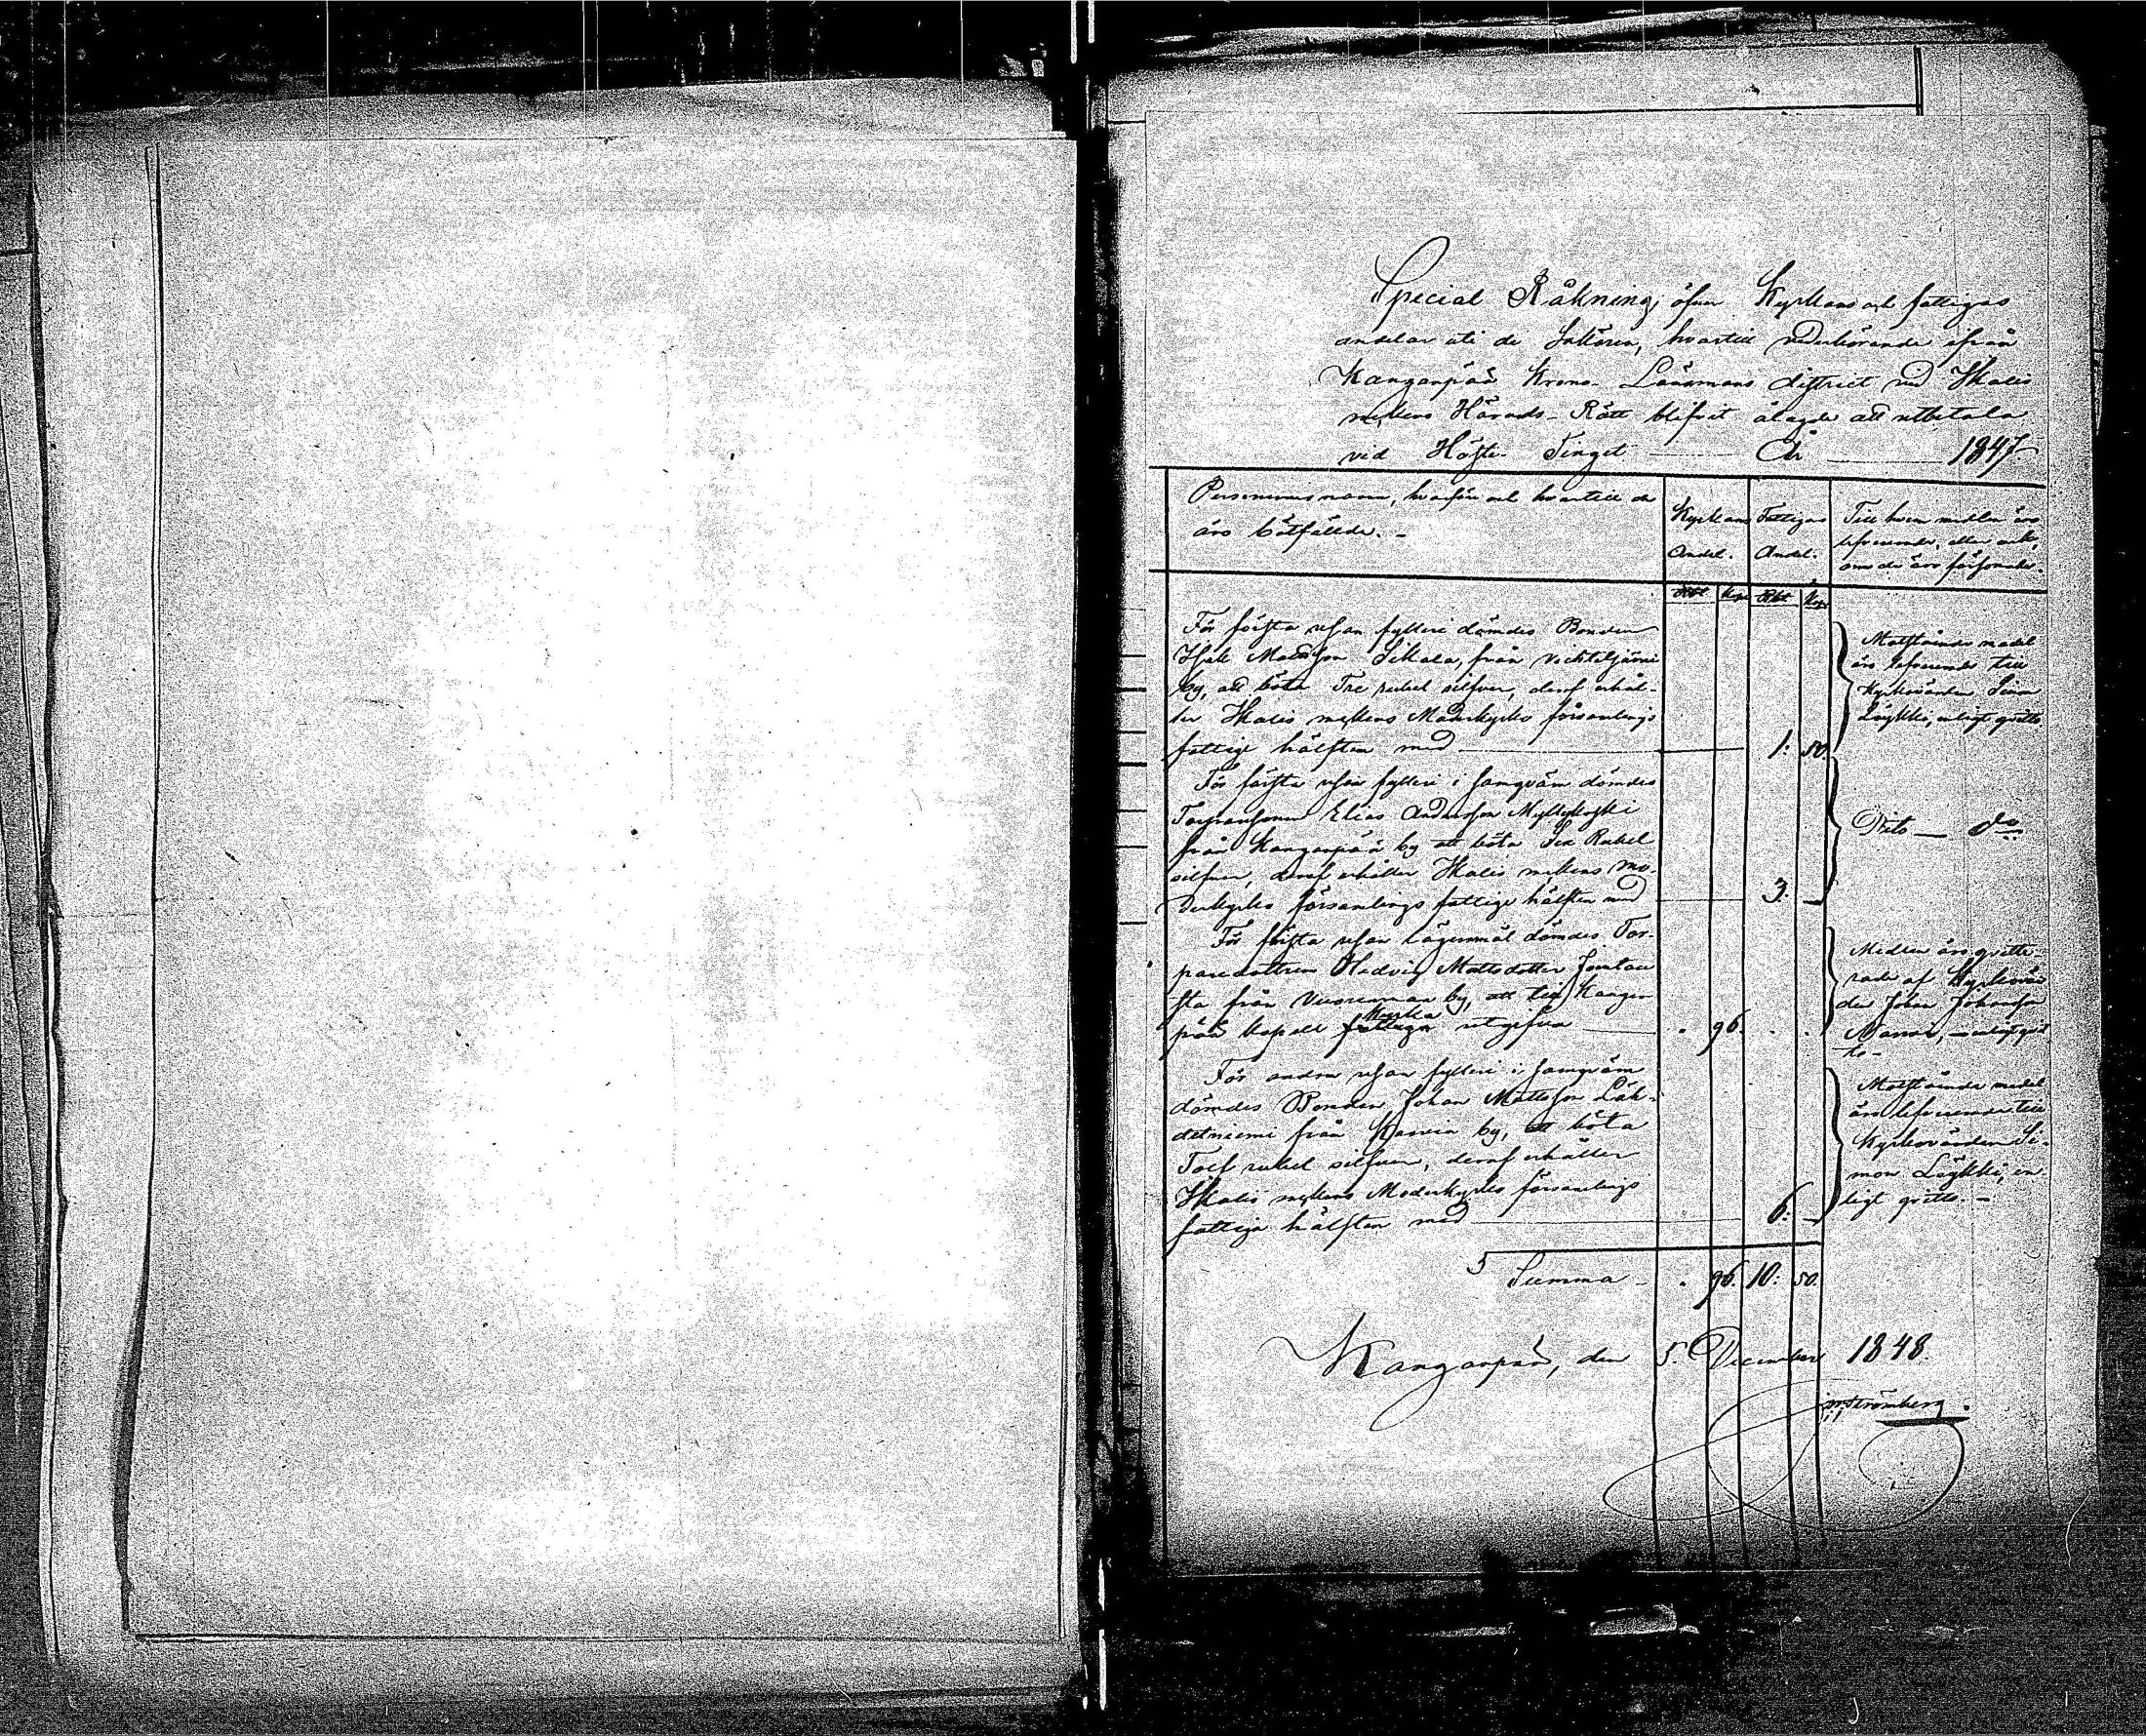 Special Räkning, öfver Kyrkans och fattigas
andelar uti de Sakören, hvartill vederbörande ifrån
Kanganpää Krono-Länsmans district vid Ikalis
möjkens Härads-Rätt blifvit ålagde att utbetala
vid Höste-Tinget År 1847
Personernes namn, hvarföre och hvartill de
äro bötfällde.-
Kyrkans
Andel.
Fattigas
Andel.
Till hvem medlen äro
lefvererade, eller ock,
om de äro
Rbl Kop Rbl Kop
För första resan fylleri dömdes Bonden
Isak Matsson Sikala, från
by, att böta Tre rubel silfver, deraf erhål-
ler Ikalis Moderkyrko församlings
fattige hälften med 1: 50.
Motstående medel
äro lefvererade till
Kyrkovärden Simon
Löykki, enligt qvitto
För första resan fylleri i samqväm dömdes
Elias Andersson Myllykoski
från Kangaspää by att böta Sex Rubel
silfver, deraf erhåller Ikalis Mo-
derkyrko församlings fattige hälften med 3. –
Dito — do
För första resan Lägersmål dömdes Tor-
paredottren Hedvig Mattsdotter
sta från by, att till Kangan-
pää kapell kyrka fattiga utgifva . 96. . .
Medlen äro qvitte-
rade af Kyrkovär-
den Johan Johansson
enligt qvit-
to-
För andra resan fylleri i samqväm
dömdes Bonden Johan Mattsson Läh-
detniemi från Karvia by, att böta
Tolf rubel silfver, deraf erhåller
Ikalis Moderkyrko församlings
fattige hälften med 6. –
Motstående medel
äro lefvererade till
Kyrkovärden Si-
mon Löykki, en-
ligt qvitto.-
Summa - . 96. 10: 50.
Kangaspää, den 5. December 1848.
Strömberg.